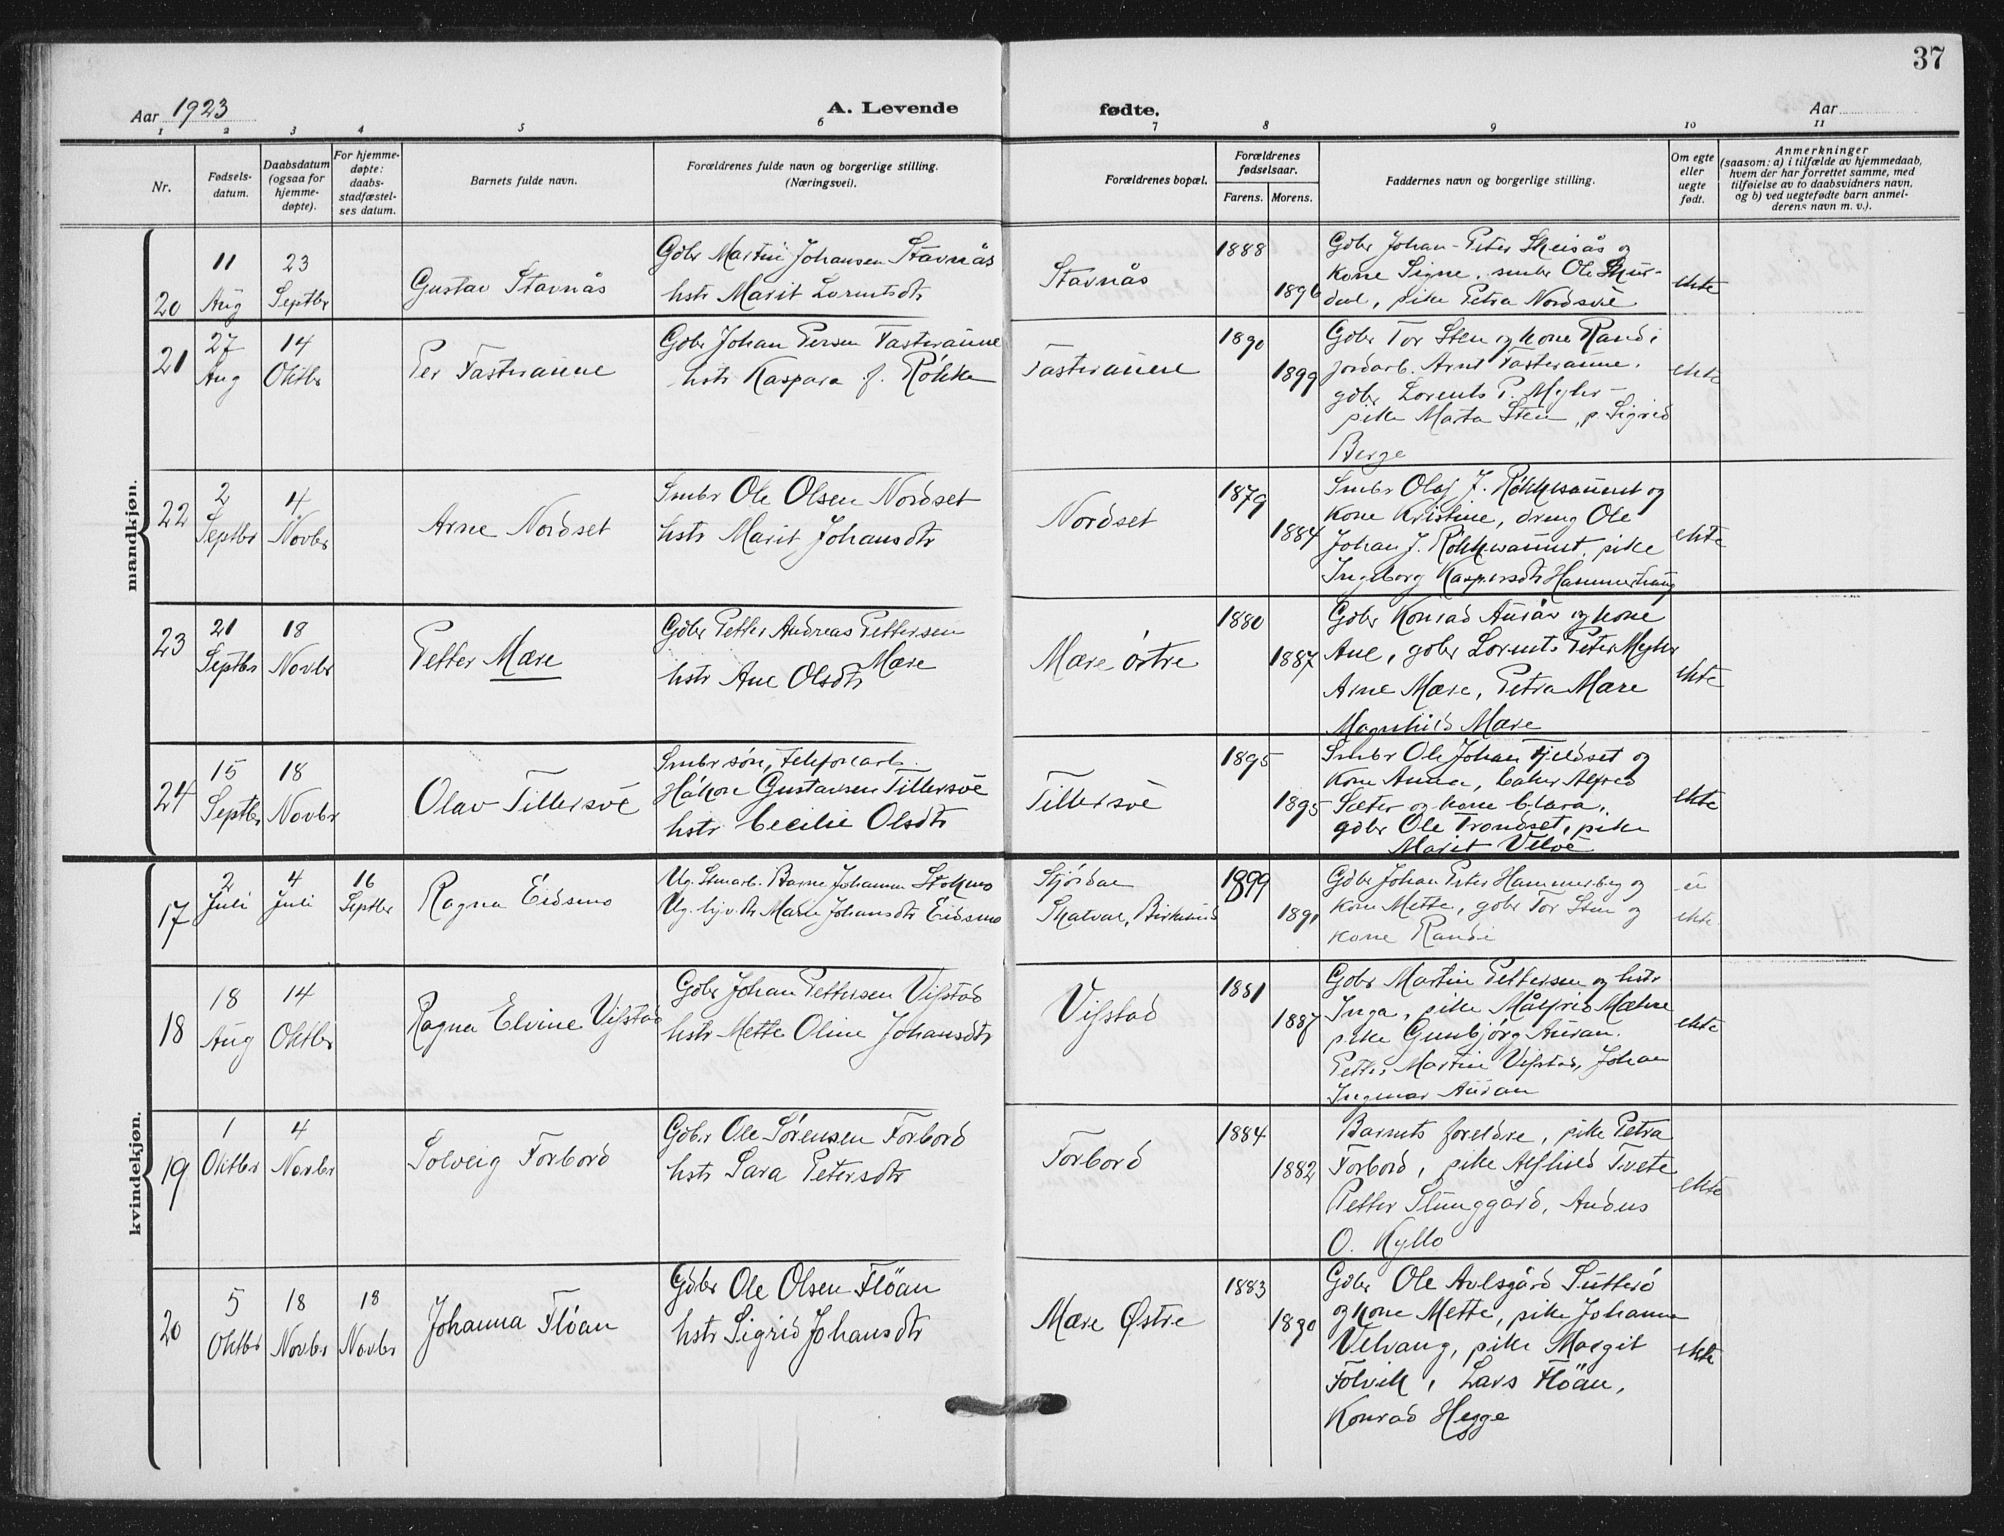 37
Aar 1923
A. Levende fødte.
Aar
1 2 3 4 5 6 7 8 9 10 11
Nr.
Fødsels-
datum.
Daabsdatum
(ogsaa for
hjemme-
døpte).
For hjemme-
døpte:
daabs-
stadfæstel-
ses datum.
Barnets fulde navn.
Forældrenes fulde navn og borgerlige stilling.
(Næringsvei).
Forældrenes bopæl.
Forældrenes
fødselsaar.
Farens. Morens.
Faddernes navn og borgerlige stilling.
Om egte
eller
uegte
født.
Anmerkninger
(saasom: a) i tilfælde av hjemmedaab,
hvem der har forrettet samme, med
tilføielse av to daabsvidners navn,
og b) ved uegtefødte barn anmel-
derens navn m. v.).
mandkjøn.
20
11
Aug
23
Septbr
Gustav Stavnås
Gbr Martin Johansen Stavnås
hstr Marit Lorntsdtr
Stavnås
1888
1896
Gbr Johan Peter Skeisås og
kone Signe, smbr Ole Skur-
dal, pike Petra Nordsve
ekte
21
27
Aug
14
Oktbr
Per Fasteraune
Gbr Johan Persen Fasteraune
hstr Kaspara f. Røkke
Fasteraune
1890
1899
Gbr Tor Sten og kone Randi
jordarb. Arnt Fasteraune,
gbr Lorents P. Myhr
pike Marta Sten, p. Sigrid
Berge
ekte
22
2
Septbr
4
Novbr
Arne Nordset
Smbr Ole Olsen Nordset
hstr Marit Johansdtr
Nordset
1879
1884
Smbr Olaf J. Røkkvaunet og
kone Kristine, dreng Ole
Johan J. Røkkvaunet, pike
Ingeborg Kaspersdtr Hammerhaug
ekte
23
21
Septbr
18
Novbr
Petter Mære
Gbr Petter Andreas Pettersen
Mære
hstr Ane Olsdtr
Mære østre
1880
1887
Gbr Konrad Aurån og kone
Ane, gbr Lornts Peter Myhr
Arne Mære, Petra Mære
Magnhild Mære
ekte
24
15
Septbr
18
Novbr
Olav Tillersve
Smbr søn, telefonarb.
Håkon Gustavsen Tillersve
hstr Cecilie Olsdtr
Tillersve
1895
1895
Smbr Ole Johan Fjeldset og
kone Anna, baker Alfred
Sæter og kone Clara,
gbr Ole Trondset, pike
Marit Velve
ekte
kvindekjøn.
17
2
Juli
4
Juli
16
Septbr
Ragna Eidsmo
Ug. Stenarb. Barne Johannes Stokmo
Ug. Marie Johansdtr Eidsmo
Stjørdal
Skatval,
1899
1891
Gbr Johan Peter Hammerberg og
kone Mette, gbr Tor Sten og
kone Randi
ei
ekte
18
18
Aug
14
Oktbr
Ragna Elvine Vifstad
Gbr Johan Pettersen Vifstad
hstr Mette Oline Johansdtr
Vifstad
1881
1887
Gbr Martin Pettersen og hstr
Inga, pike Målfrid Mæhre
pike Gunbjørg Auran.
Petter Martin Vifstad, Johan
Ingmar Auran
ekte
19
1
Oktbr
4
Novbr
Solveig Forbord
Gbr Ole Sørensen Forbord
hstr Sara Petersdtr
Forbord
1884
1882
Barnets foreldre, pike Petra
Forbord, pike Alfhild Tvete
Petter Stunggård, Anders
O. Kyllo
ekte
20
5
Oktbr
18
Novbr
18
Novbr
Johanna Fløan
Gbr Ole Olsen Flöan
hstr Sigrid Johansdtr
Mære Østre
1883
1890
Gbr Ole Avelsgård Sutterö
og kone Mette, pike Johanna
Velvang, pike Margit
Folvik, Lars Flöan,
Konrad Hegge
ekte